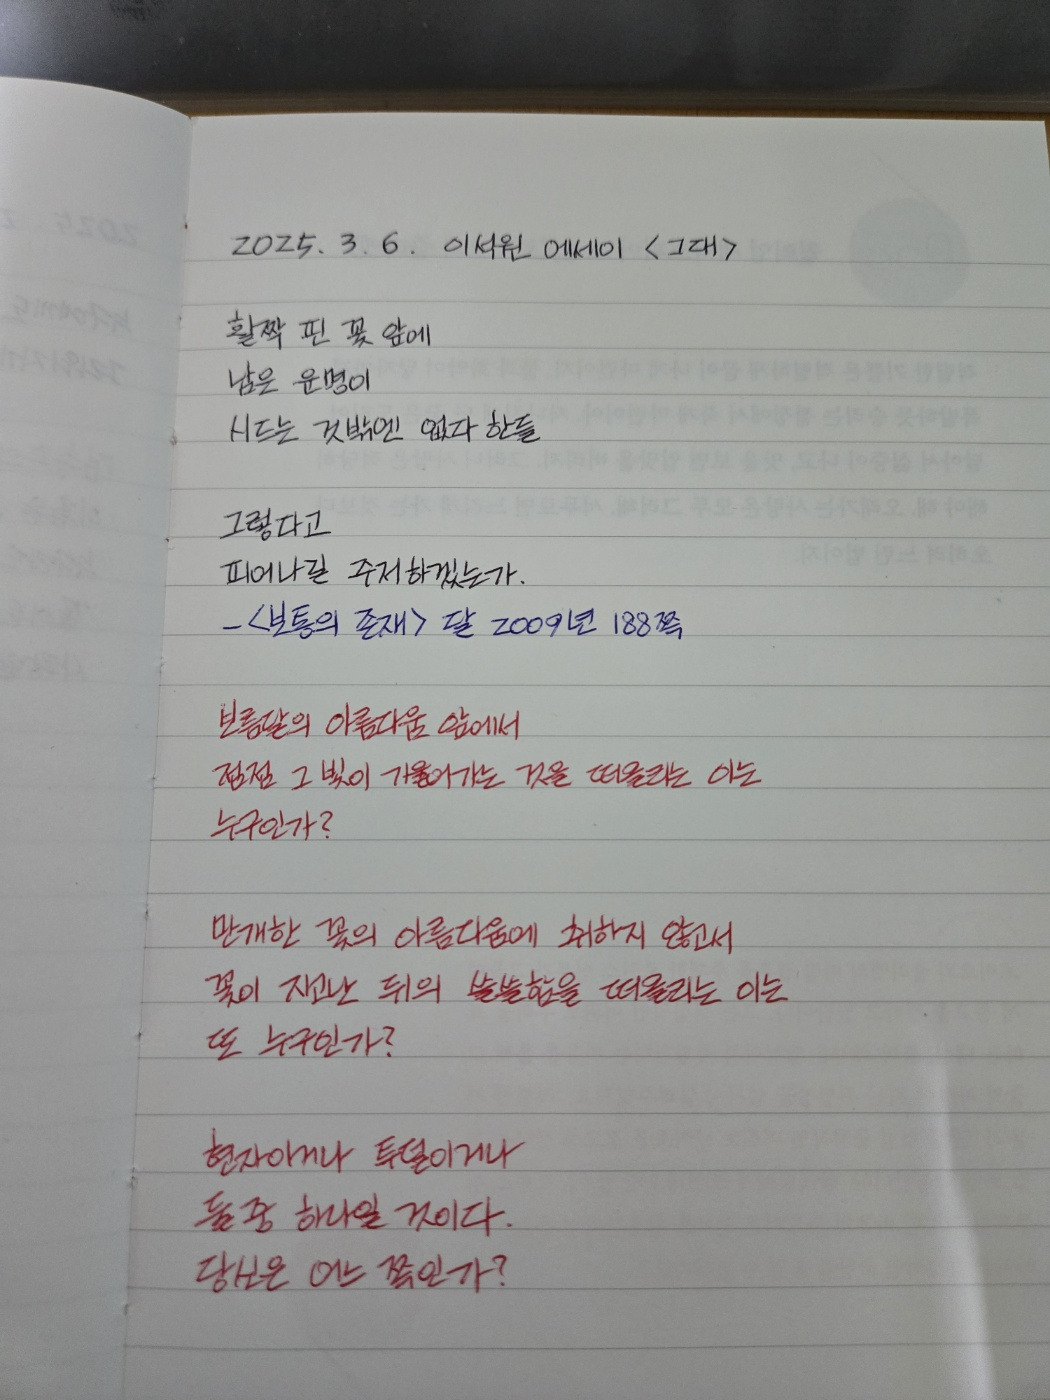 2025. 3. 6. 이석원 에세이 <그대>
활짝 핀 꽃 앞에
남은 운명이
시드는 것밖엔 없다 한들
그렇다고
피어나길 주저하겠는가.
-<보통의 존재> 달 2009년 188쪽
보름달의 아름다움 앞에서
점점 그 빛이 기울어가는 것을 떠올리는 이는
누구인가?
만개한 꽃의 아름다움에 취하지 않고서
꽃이 지고난 뒤의 쓸쓸함을 떠올리는 이는
또 누구인가?
현자이거나 투덜이거나
둘 중 하나일 것이다.
당신은 어느 쪽인가?